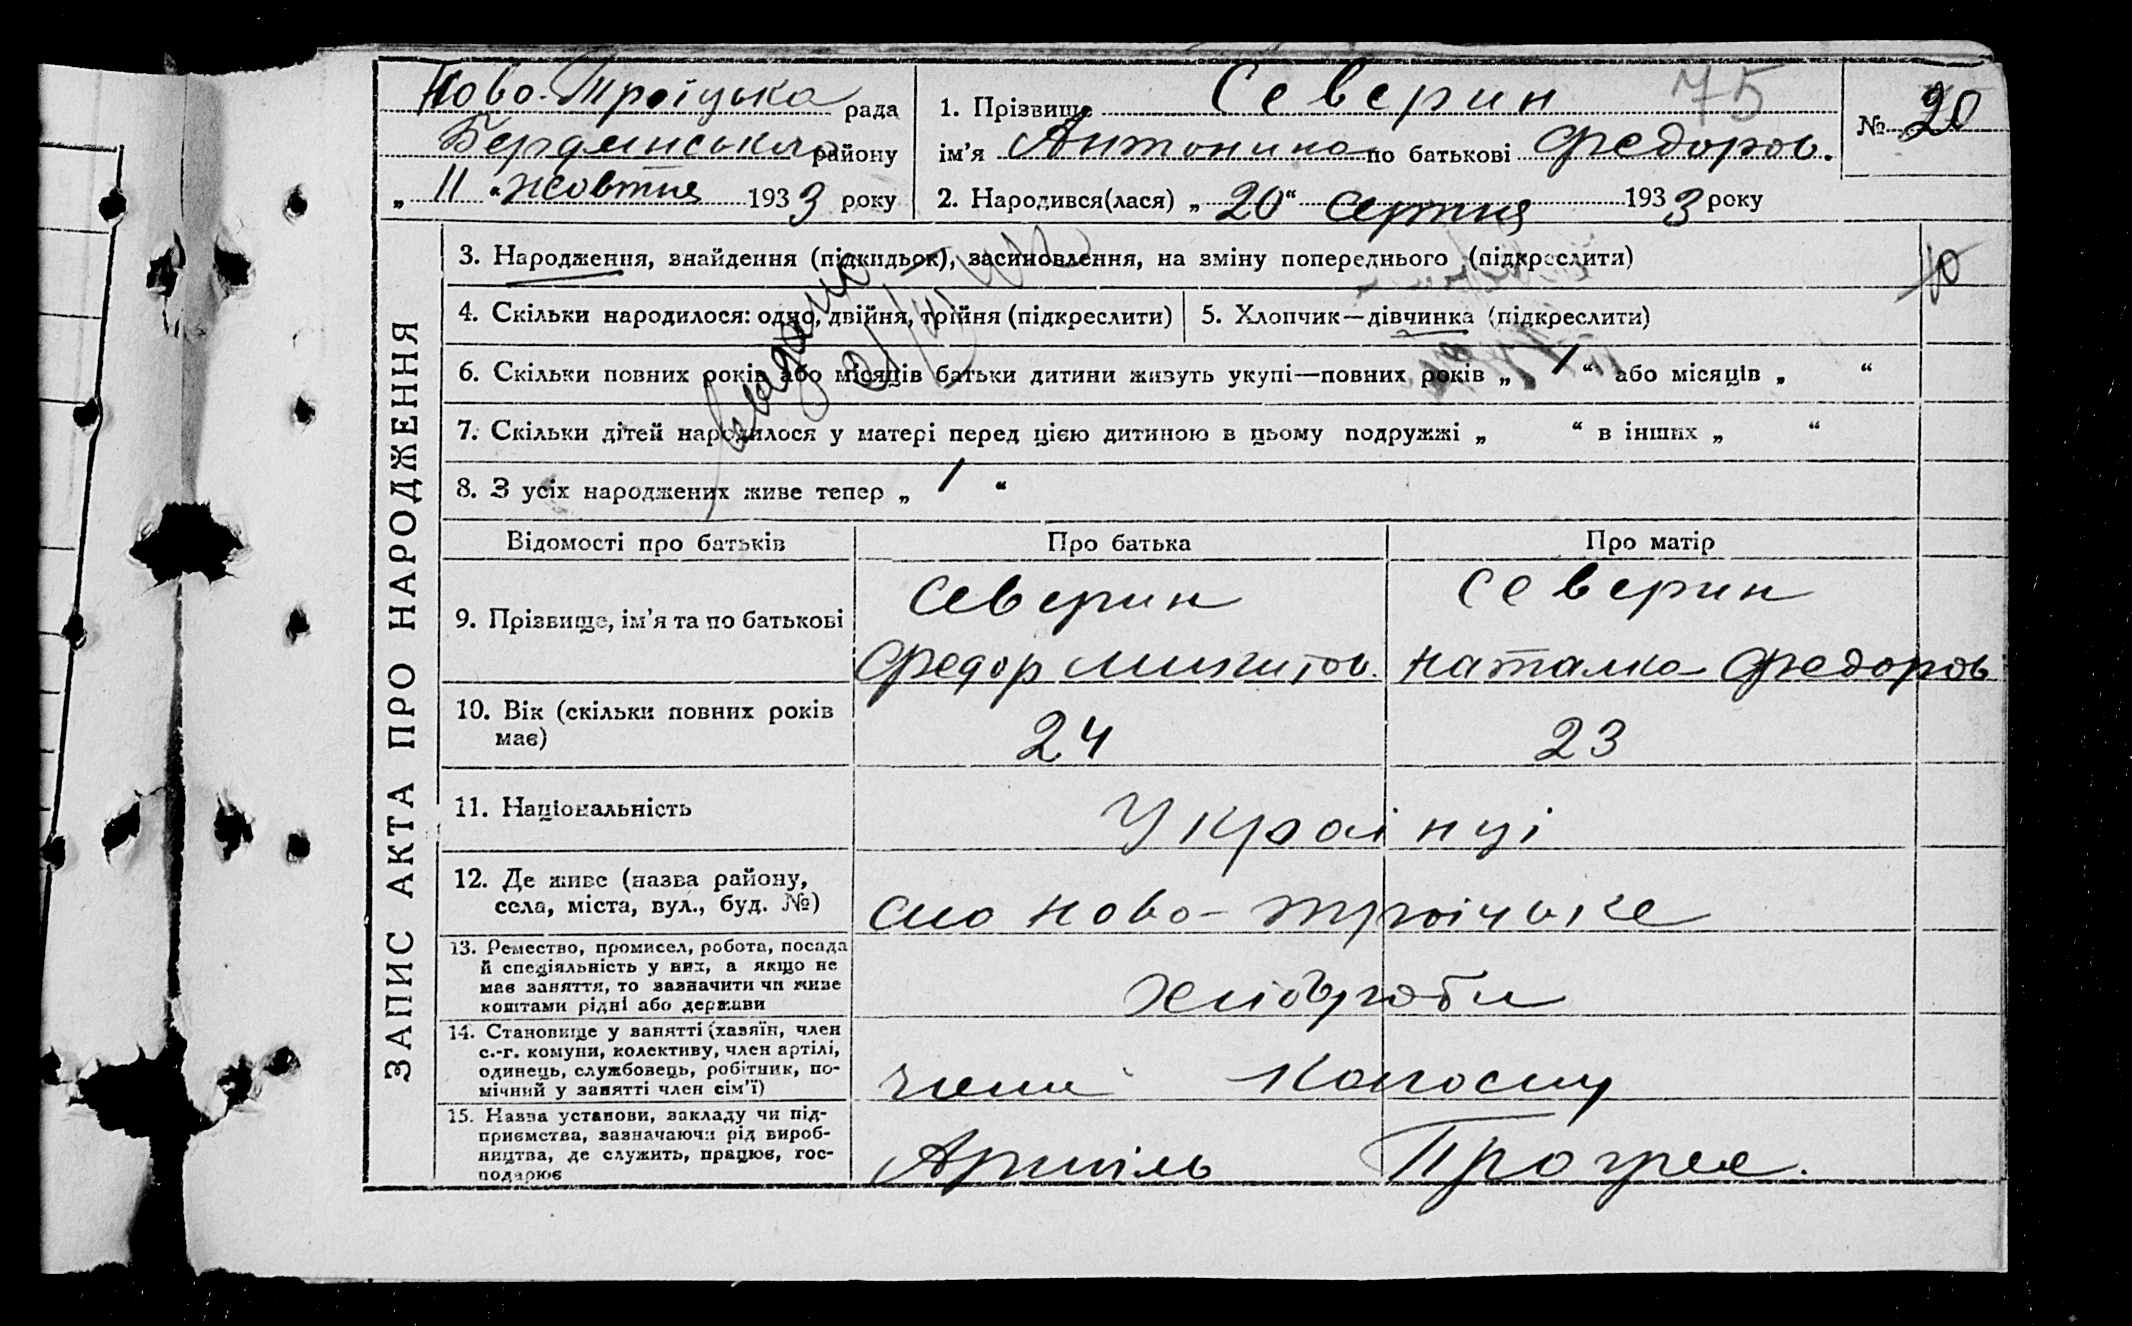 Ново-Троїцька рада
Бердянська району
„ 11 “ жовтня 1933 року
1. Прізвище Северин 75
ім'я Антонина по батькові Федоров.
2. Народився(лася) „ 20 “ серпня 1933 року
№ 20
ЗАПИС АКТА ПРО НАРОДЖЕННЯ
3. Народження, знайдення (підкидьок), засиновлення, на зміну попереднього (підкреслити)
10
4. Скільки народилося: одно, двійня, трійня (підкреслити) 5. Хлопчик—дівчинка (підкреслити)
6. Скільки повних років або місяців батьки дитини живуть укупі—повних років „ 1 “ або місяців „ “
7. Скільки дітей народилося у матері перед цією дитиною в цьому подружжі „ “ в інших „ “
8. З усіх народжених живе тепер „ 1 “
Відомості про батьків Про батька Про матір
9. Прізвище, ім'я та по батькові
Северин
Федор Микитов.
Северин
Наталка Федоров
10. Вік (скільки повних років
має)
24 23
11. Національність
Українці
12. Де живе (назва району,
села, міста, вул., буд. №)
село Ново-Троїцьке
13. Ремество, промисел, робота, посада
й спеціяльність у них, а якщо не
має заняття, то зазначити чи живе
коштами рідні або держави
Хлібороби
14. Становище у занятті (хазяїн, член
с.-г. комуни, колективу, член артілі,
одинець, службовець, робітник, по-
мічний у занятті член сім'ї)
члени Колгоспу
15. Назва установи, закладу чи під-
приємства, зазначаючи рід вироб-
ництва, де служить, працює, гос-
подарює
Артіль Прогрес.